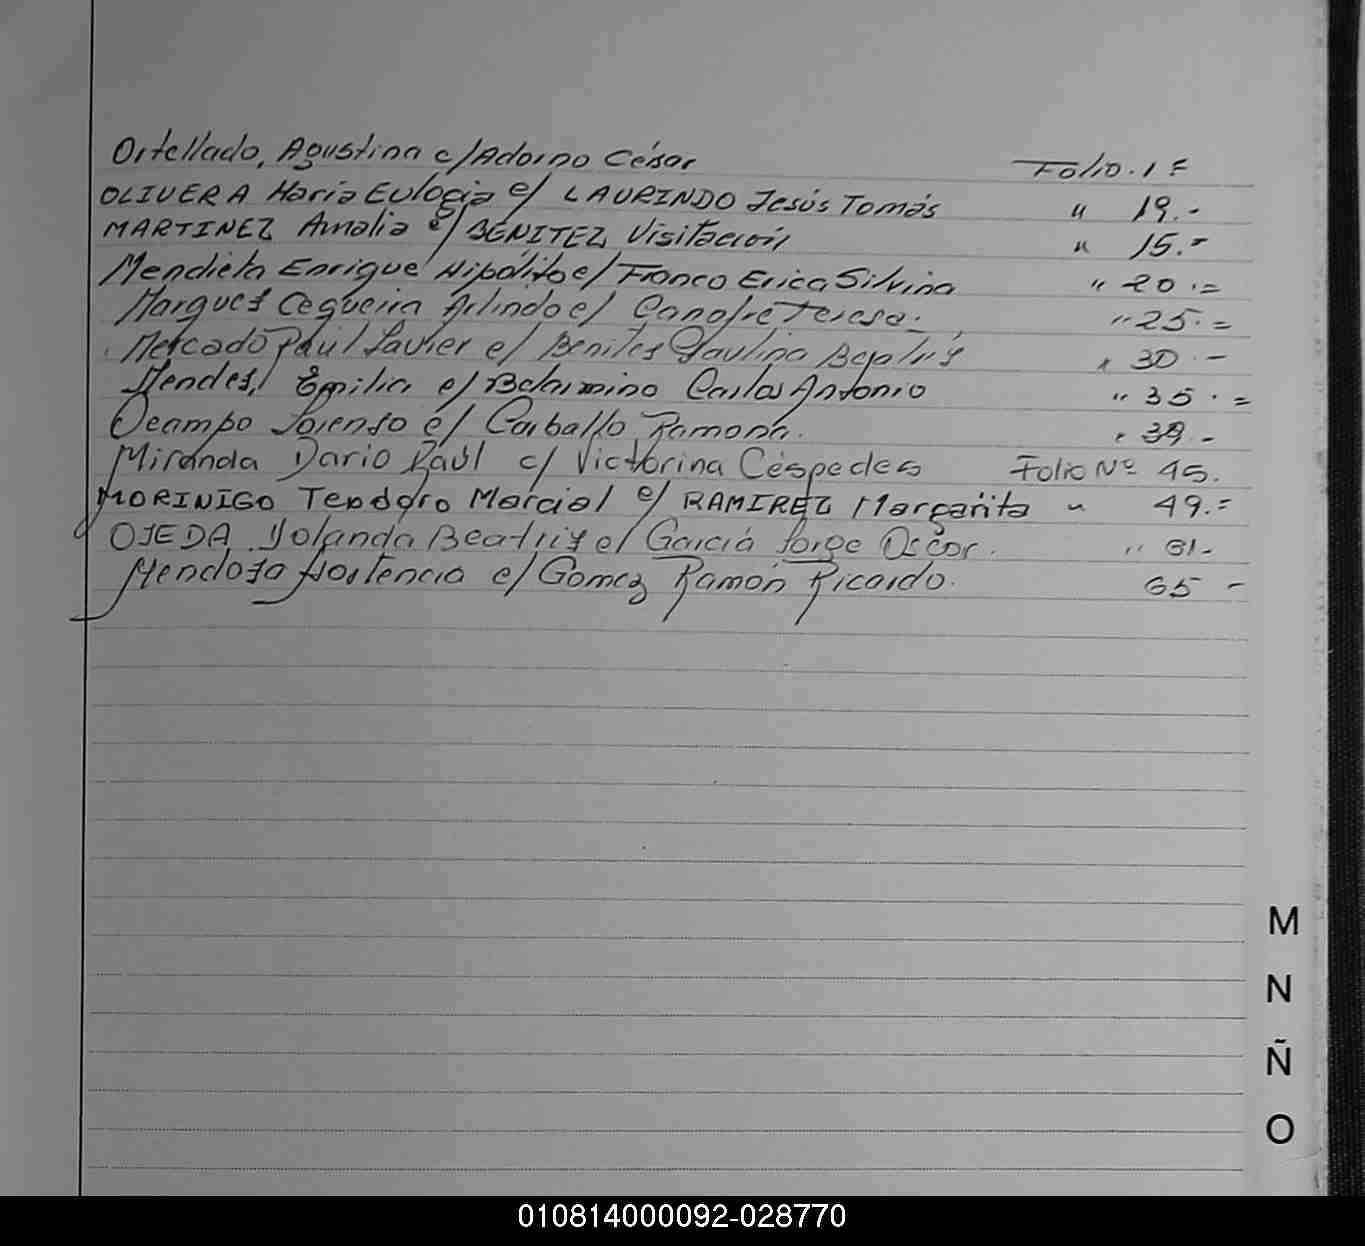 Ortellado, Agustina c/ Adorno César Folio. 1 =
OLIVERA María Eulogia c/ LAURINDO Jesús Tomás " 19.-
MARTINEZ Amalia c/ BENITEZ Visitación " 15.-
Mendieta Enrique Hipólito c/ Franco Erica Silvina " 20.=
Marques Cegueira Arlindo c/ Canofre Teresa. " 25.=
Mercado Raúl Javier c/ Benites Paulina " 30.-
Mendes, Emilia c/ Belarmino Carlos Antonio " 35.=
Ocampo Lorenso c/ Carballo Ramona. " 39.-
Miranda Dario Raúl c/ Victorina Céspedes Folio Nº 45.
MORINIGO Teodoro Marcial c/ RAMIREZ Margarita " 49.=
OJEDA Yolanda Beatriz c/ García Jorge Oscar. " 61-
Mendoza Hortencia c/ Gomez Ramón Ricardo. 65 -
M
N
Ñ
O
010814000092-028770